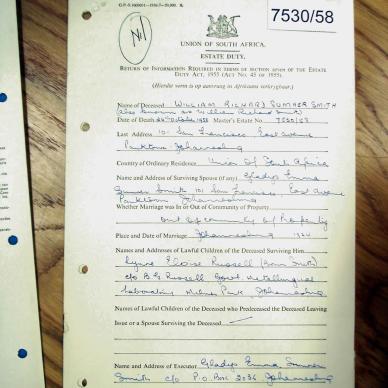 G.P.-S.
7530/58
Nil
UNION OF SOUTH AFRICA.
ESTATE DUTY.
RETURN OF INFORMATION REQUIRED IN TERMS OF SECTION seven OF THE ESTATE
DUTY ACT, 1955 (ACT NO. 45 OF 1955).
(Hierdie vorm is op aanvraag in Afrikaans verkrygbaar.)
Name of Deceased WILLIAM RICHARD SUMNER SMITH
(also known as William Richard Smith)
Date of Death October 1958 Master's Estate No. 7530/58
Last Address 101 San Francisco, East Avenue
Parktown Johannesburg
Country of Ordinary Residence Union of South Africa
Name and Address of Surviving Spouse (if any) Gladys Emma
Sumner Smith 101 San Francisco, East Avenue
Parktown Johannesburg
Whether Marriage was in or Out of Community of Property
out of community of Property
Place and Date of Marriage Johannesburg
Names and Addresses of Lawful Children of the Deceased Surviving Him
Eloise Russell (born Smith)
c/o B.G. Russell Govt. Metallurgical
Laboratory Milner Park, Johannesburg
Names of Lawful Children of the Deceased who Predeceased the Deceased Leaving
Issue or a Spouse Surviving the Deceased
Name and Address of Executor Gladys Emma Sumner
Smith c/o P.O. Box 2036 Johannesburg